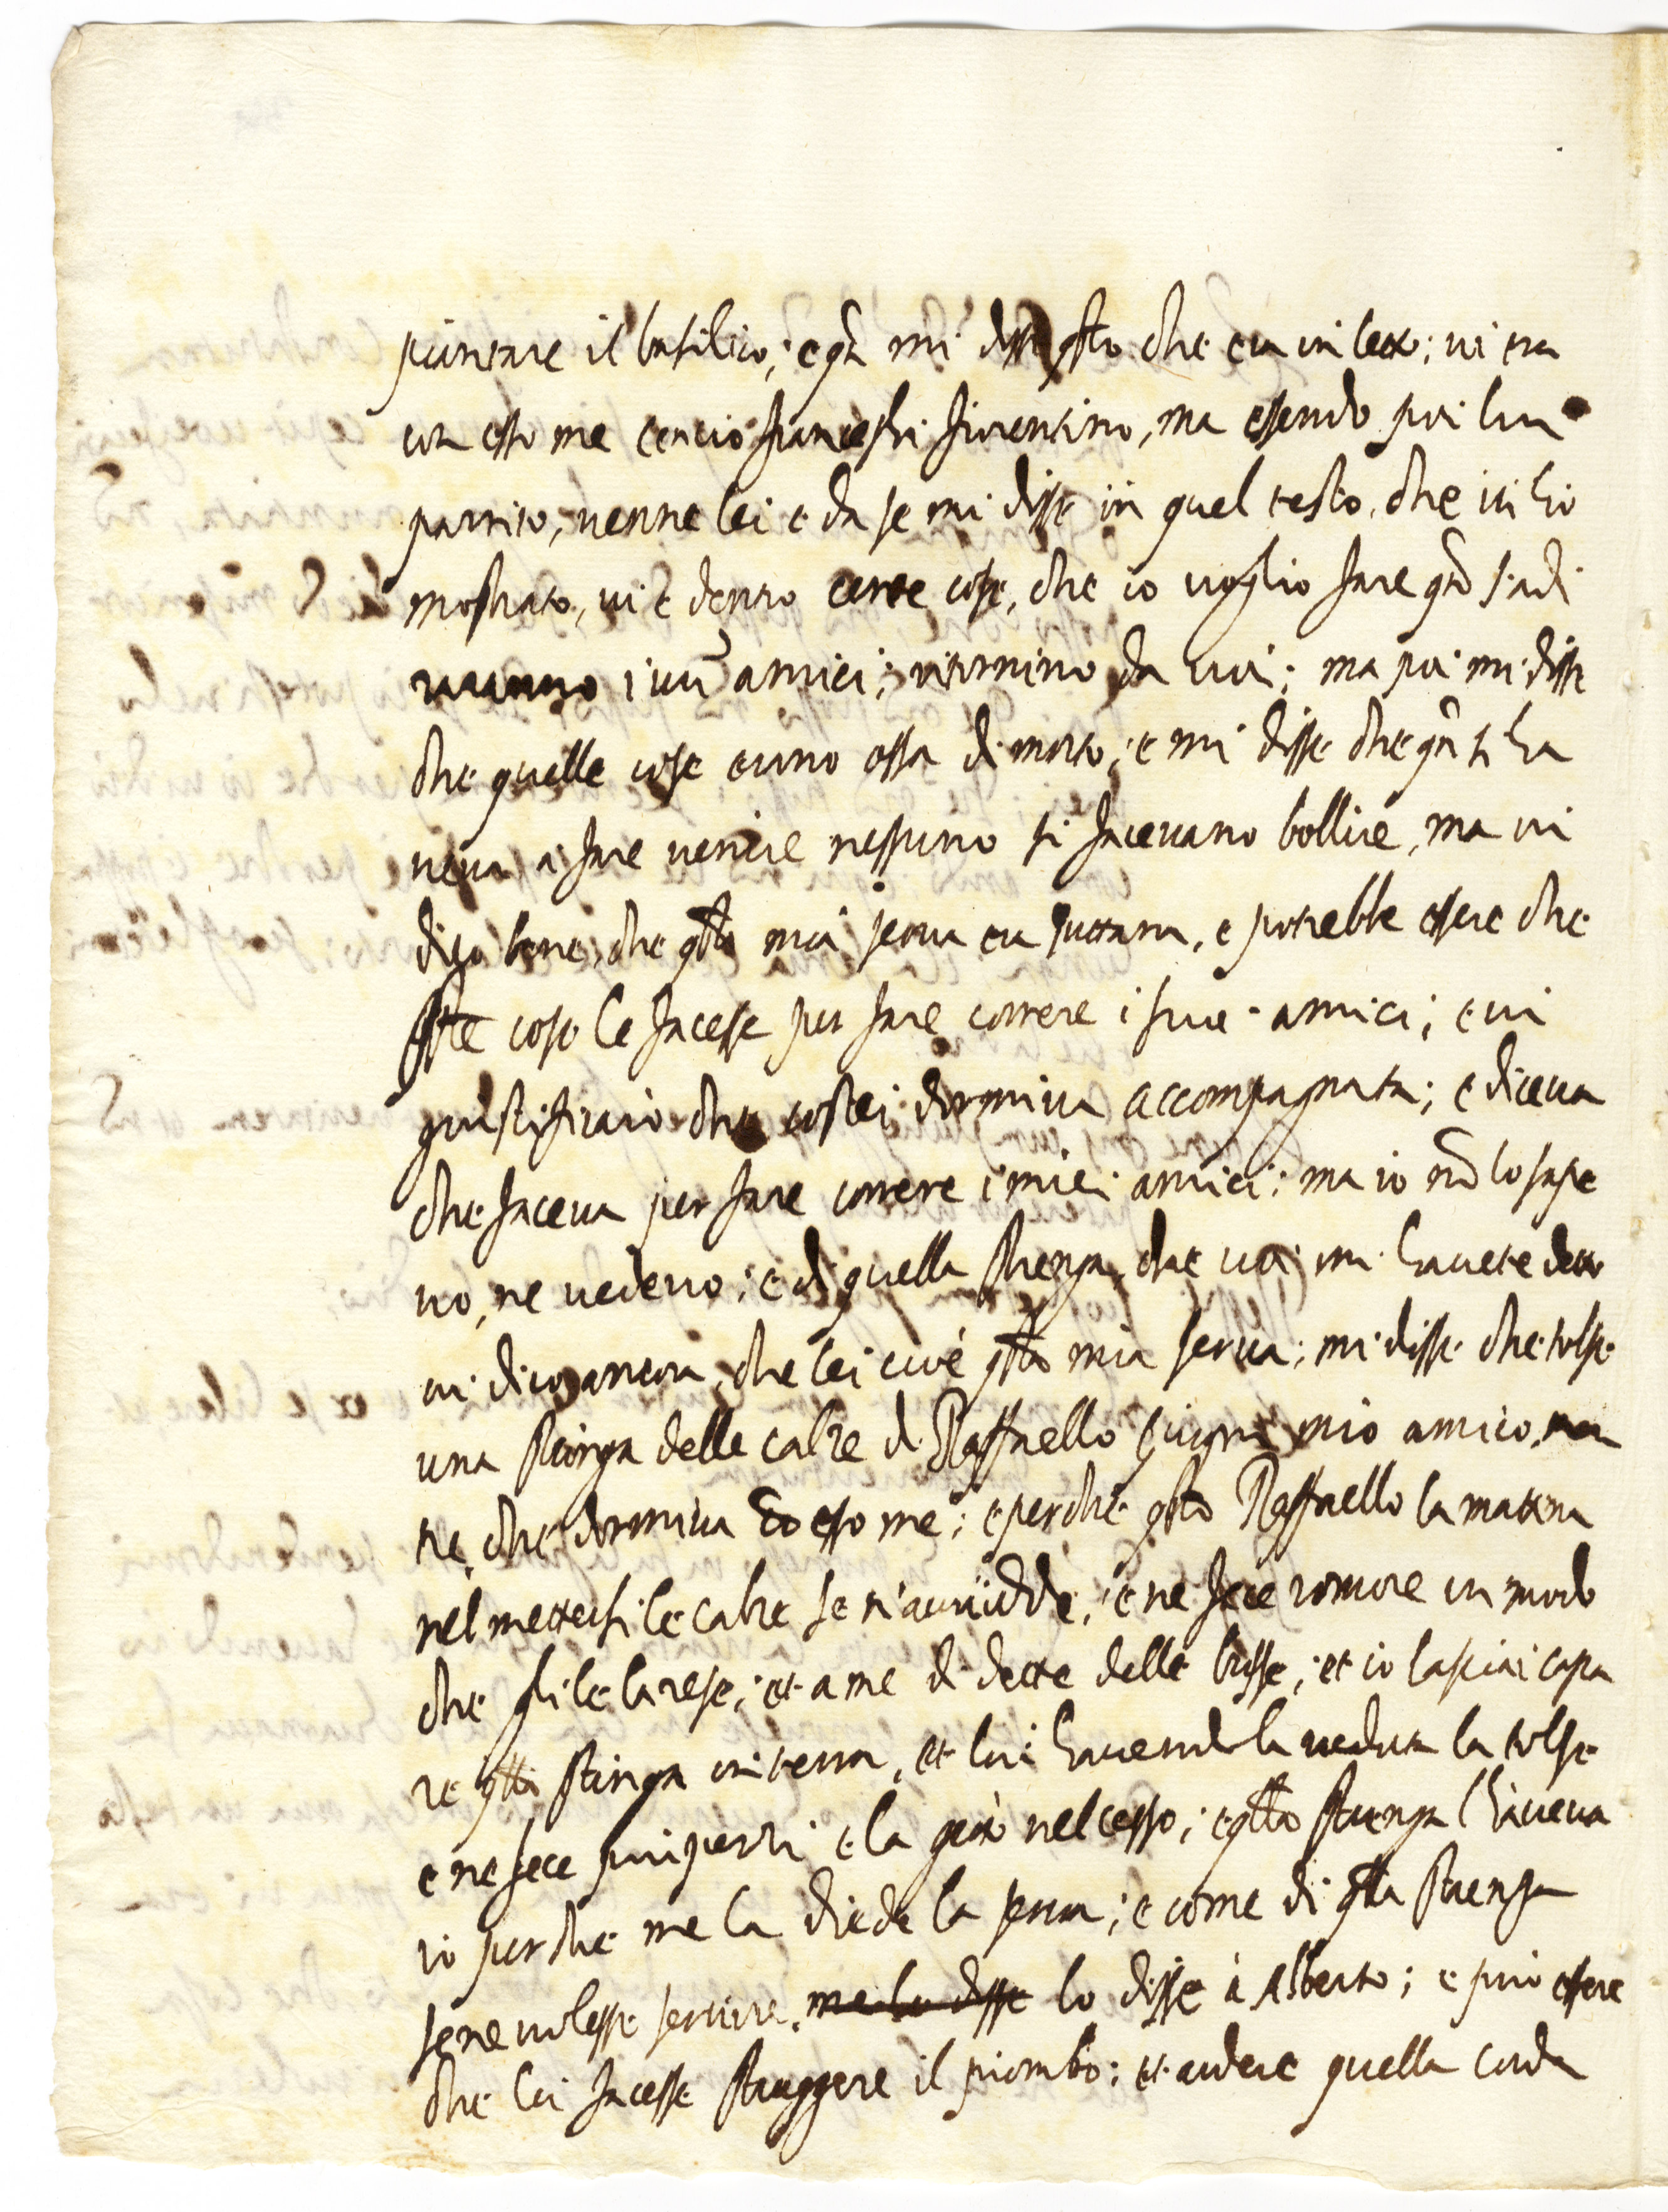 piantare il basilico; e qñ mi disse qsto che era in letto; vi era
con esso me Cencio Franceschi fiorentino, ma essendo poi lui
partito, venne lei e da se mi disse in quel testo, che vi hò
mostrato, vi è dentro certe cose, che io voglio fare qñ s'adi
ranno i vri amici; ritornino da voi; ma poi mi disse
che quelle cose erano ossa di morto; e mi disse che qñ si ha
veva a fare venire nessuno si facevano bollire, ma vi
dico bene, che qsta mia serva era puttana, e potrebbe essere che
qste cose le facesse per fare correre i suoi amici; e vi
giustificarò che costei dormiva accompagnata; e diceva
che faceva per fare correre i miei amici; ma io nõ lo sape
vo, ne vedevo; e di quella strenga, che voi mi havete detto
vi dico ancora, che lei cioè qsta mia serva; mi disse che tolse
una stringa delle calze di Raffaello Giugni mio amico,
te, che dormiva co esso me; e perche qsto Raffaello la mattina
nel mettersi le calze se n'avvidde, e ne fece romore in modo
che gli le la rese; et a me di dette delle busse; et io lasciai casca
re qsta stringa in terra, et lui havendola veduta la tolse
e ne fece più pezzi e la gettò nel cesso; e qsta strenga l'haveva
io perche me la diede la serva; e come di qsta strenga
se ne volesse servire, me lo disse lo disse à Alberto; e può essere
che lei facesse struggere il piombo; et ardere quella corda